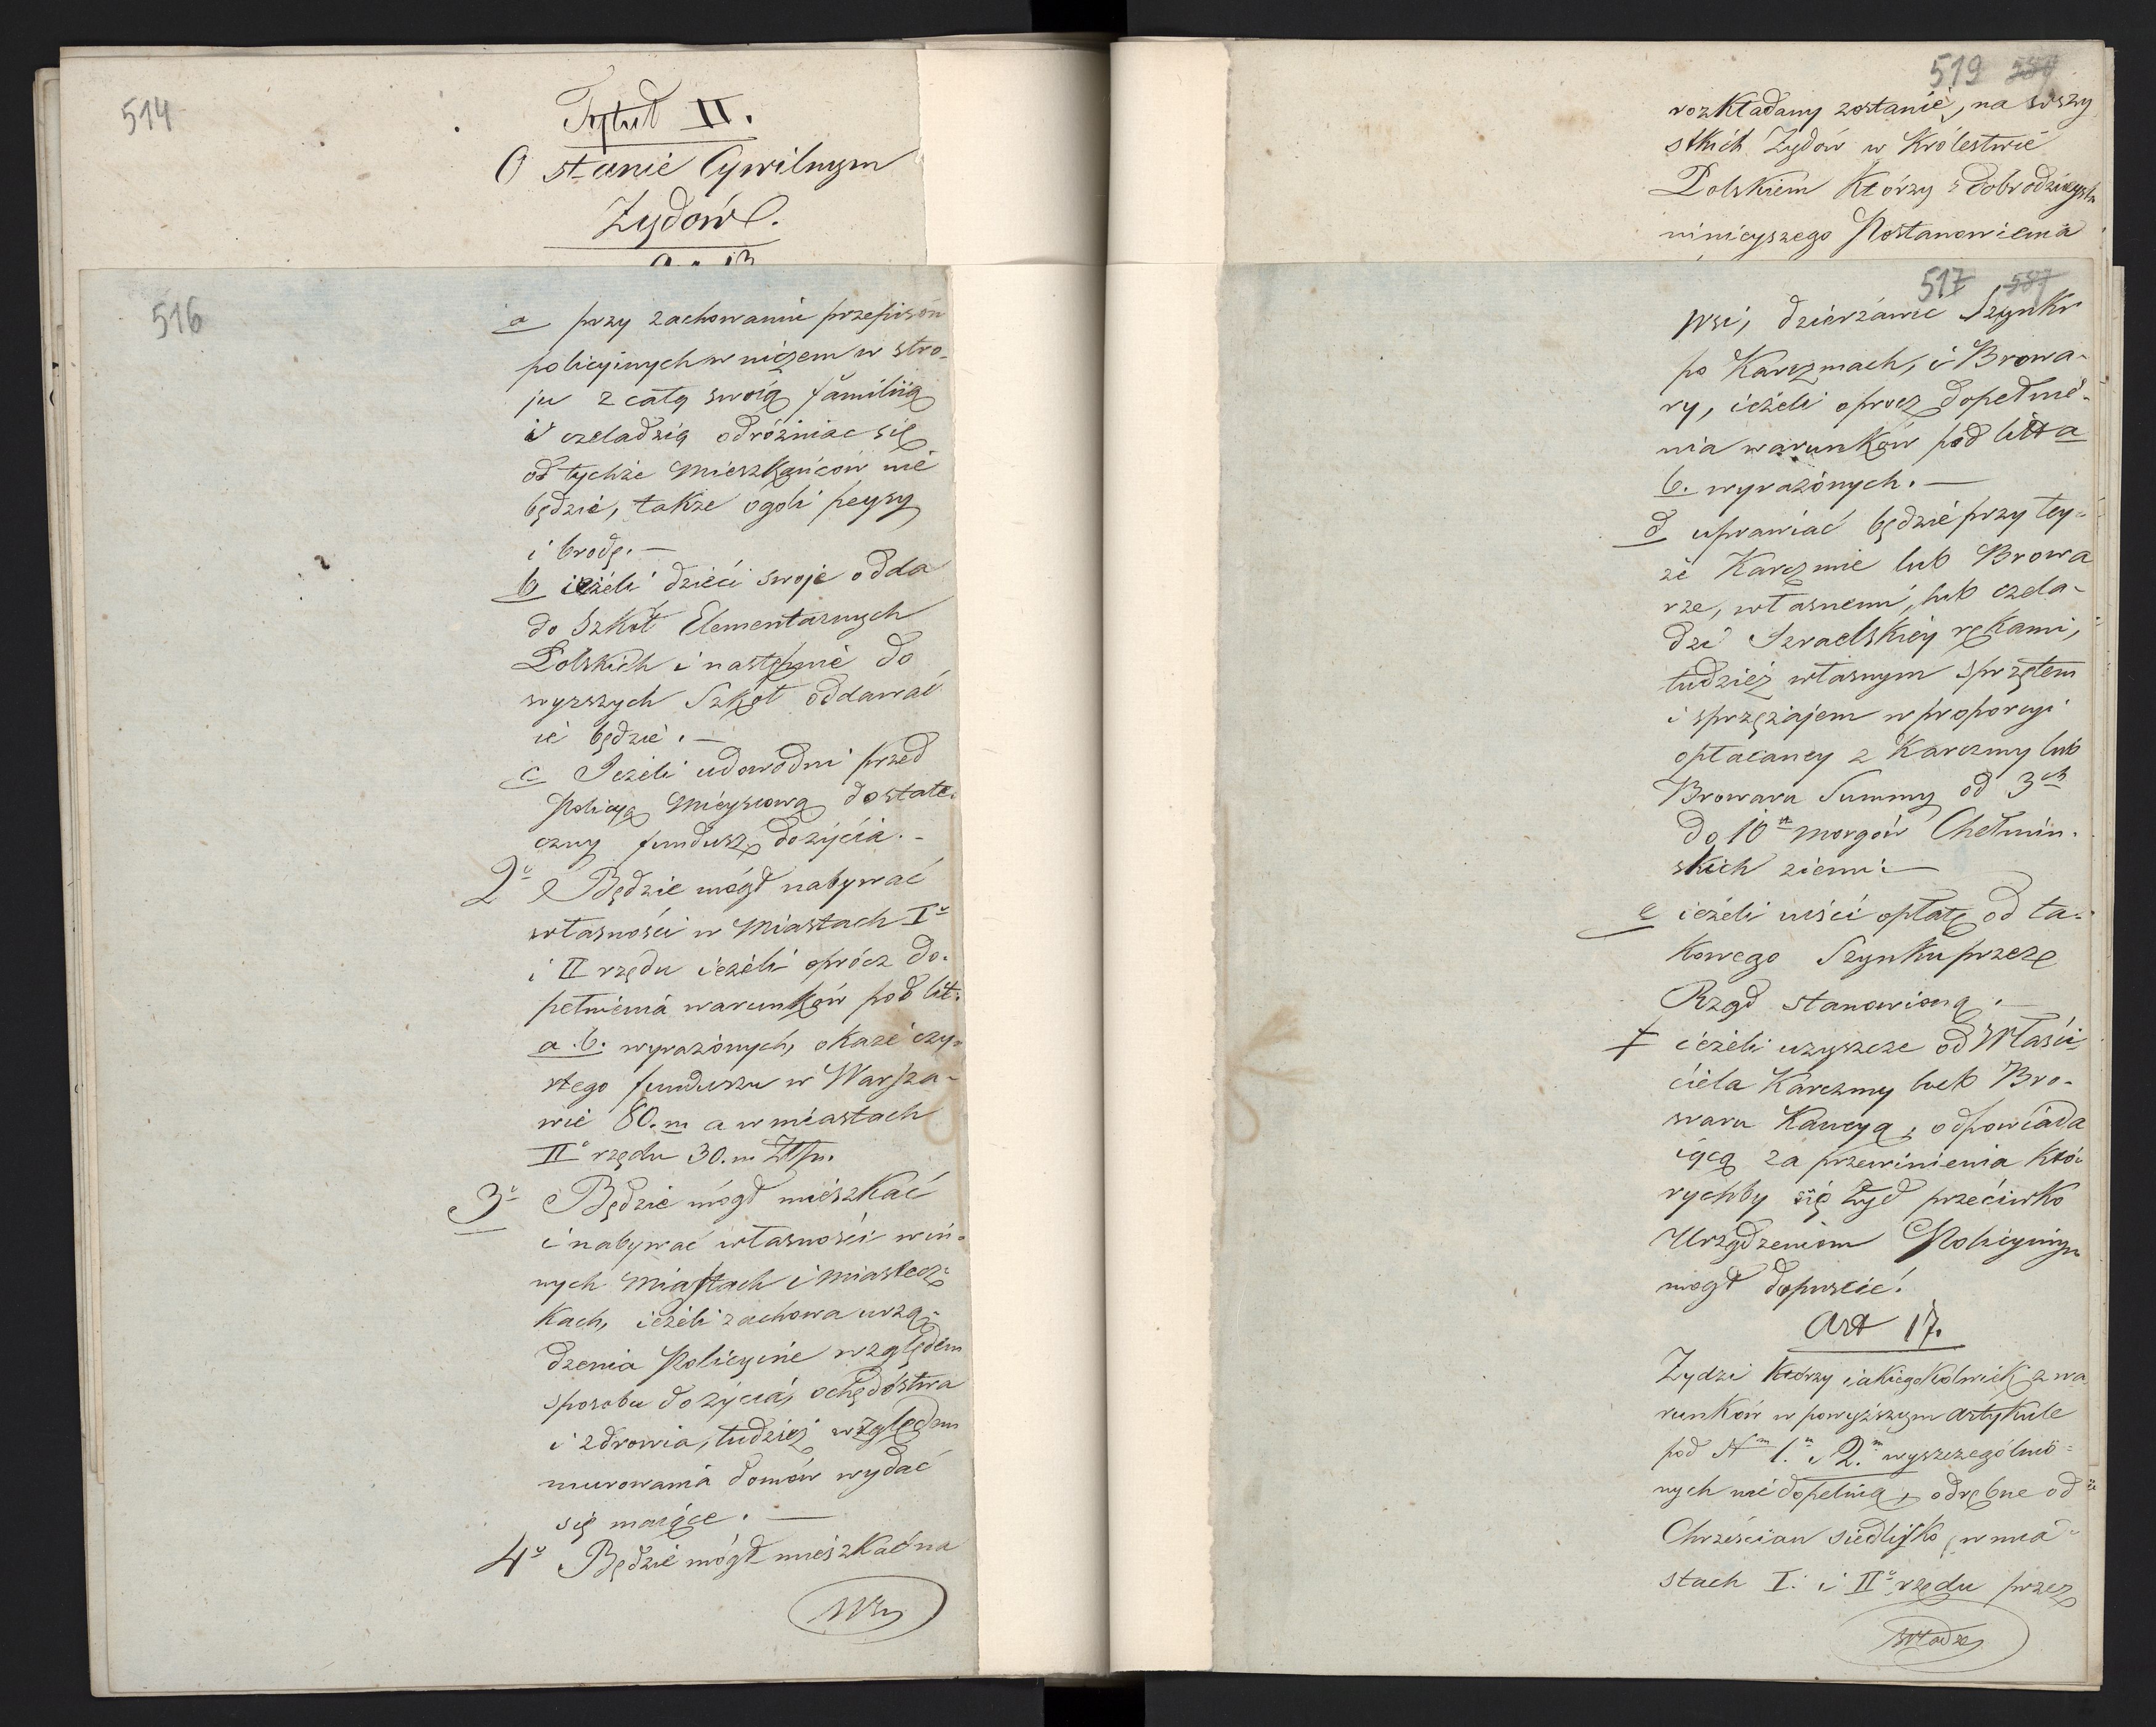 514
Tytuł II.
O stanie Cywilnym
Żydów.
516
a przy zachowaniu przepisów
policyinych w niczem w stro-
ju z całą swoią familiią
i czeladzią odróżniac się
od tychże Mieszkańców nie
będzie, takze ogoli peysy
i brodę. —
b ieżeli dzieci swoje odda
do Szkół Elementarnych
Polskich i następnie do
wyższych Szkół oddawać
ie będzie. —
c Jeżeli udowodni przed
Policyą Mieyscową dostate-
czny fundusz do życia. –
2o Będzie mógł nabywać
własności w Miastach Io
i II rzędu ieżeli oprócz do-
pełnienia warunków pod lit:
a. b. wyrażonych, okaże czy-
stego funduszu w Warsza-
wie 80.m a w miastach
IIo rzędu 30.m Złłp.
3o Będzie mógł mieszkać
i nabywać własności w in-
nych Miastach i Miastecz-
kach, ieżeli zachowa urzą-
dzenia Policyine względem
sposobu do życia, ochędóstwa
i zdrowia, tudzież względem
murowania domów wydać
się maiące. —
4o Będzie mógł mieszkać na
Wsi
519 559
rozkładany zostanie, na wszy
stkich Żydów w Królestwie
Polskiem Którzy z dobrodzieyst
ninieyszego Postanowienia
517 557
Wsi, dzierżawić Szynki
po Karczmach, i Browa-
ry, ieżeli oprocz dopełnie-
nia warunków pod litt a
b. wyrażonych. —
d uprawiać będzie przy tey-
że Karczmie lub Browa
rze, własnemi, lub czela-
dzi Izraelskiéy rękami,
tudzież własnym sprzętem
i sprzężajem w proporcyi
opłacaney z Karczmy lub
Browaru Summy od 3ch
do 10u morgów Chełmin-
skich ziemi: —
e ieżeli uiści opłatę od ta-
kowego Szynku przez
Rząd stanowioną. —
f ieżeli uzyszcze od Właści-
ciela Karczmy lub Bro-
waru Kaucyą, odpowiada
iącą za przewinienia któ-
rychby się Żyd przeciwko
Urządzeniom Policyinym
mogł dopuścić.
Art 17.
Żydzi Którzy iakiegokolwiek z wa
runków w powyższym artykule
pod Nm 1.m i 2.m wyszczególnio-
nych nie dopełnią, odrębne od
Chrześcian siedlisko, w mia-
stach I. i IIo rzędu przez
Władze